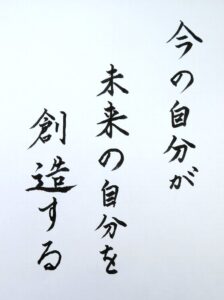 今の自分が
未来の自分を
創造する